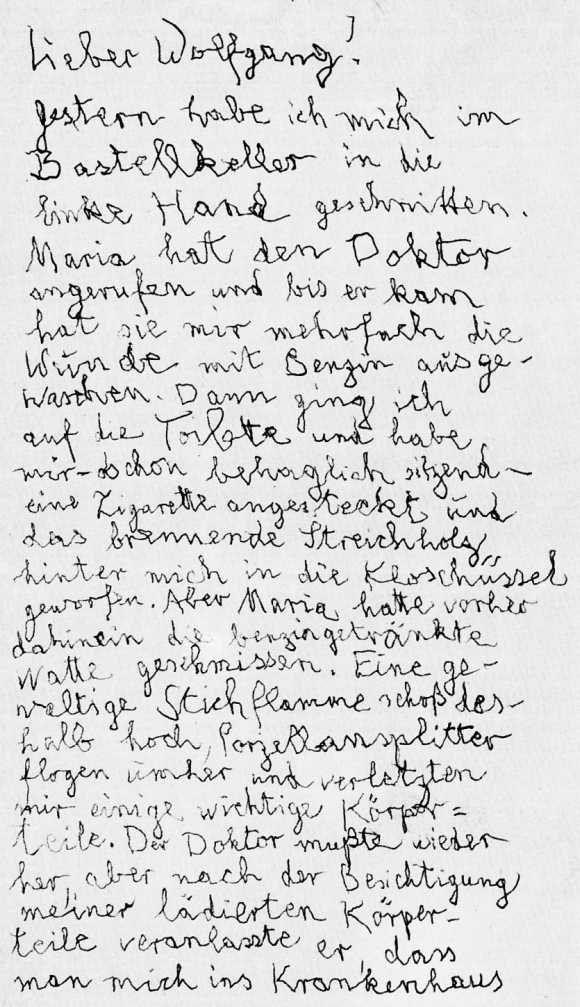 Lieber Wolfgang!
gestern habe ich mich im
Bastellkeller in die
linke Hand geschnitten.
Maria hat den Doktor
angerufen und bis er kam
hat sie mir mehrfach die
Wunde mit Benzin ausge-
waschen. Dann ging ich
auf die Toilette und habe
mir - schon behaglich sitzend -
eine Zigarette angesteckt und
das brennende Streichholz
hinter mich in die Kloschüssel
geworfen. Aber Maria hatte vorher
dahinein die benzingetränkte
Watte geschmissen. Eine ge-
waltige Stichflamme schoß des-
halb hoch, Porzellansplitter
flogen umher und verletzten
mir einige wichtige Körper=
teile. Der Doktor mußte wieder
her, aber nach der Besichtigung
meiner lädierten Körper-
teile veranlasste er, dass
man mich ins Krankenhaus